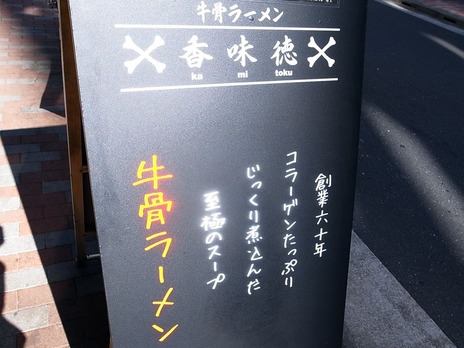 牛骨ラーメン
香味徳
ka mi toku
創業六十年
コラーゲンたっぷり
じっくり煮込んだ
至極のスープ
牛骨ラーメン